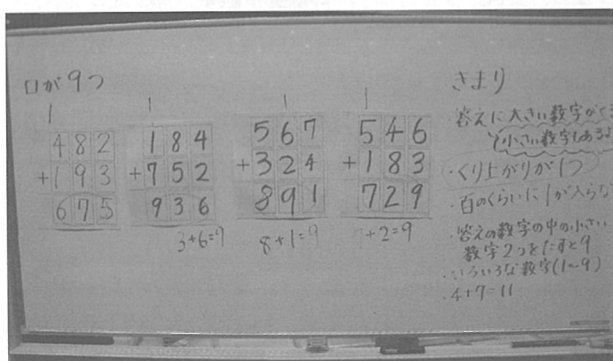 口が9つ
1
482
+193
675
1
184
+752
936
3+6=9
1
567
+324
891
8+1=9
1
546
+183
729
7+2=9
きまり
答えに大きい数字が
小さい数字もある
・くり上がりが1つ
・百のくらいに1が入らな
・答えの数字の中の小さい
数字2つをたすと9
・いろいろな数字(1~9)
・4+7=11